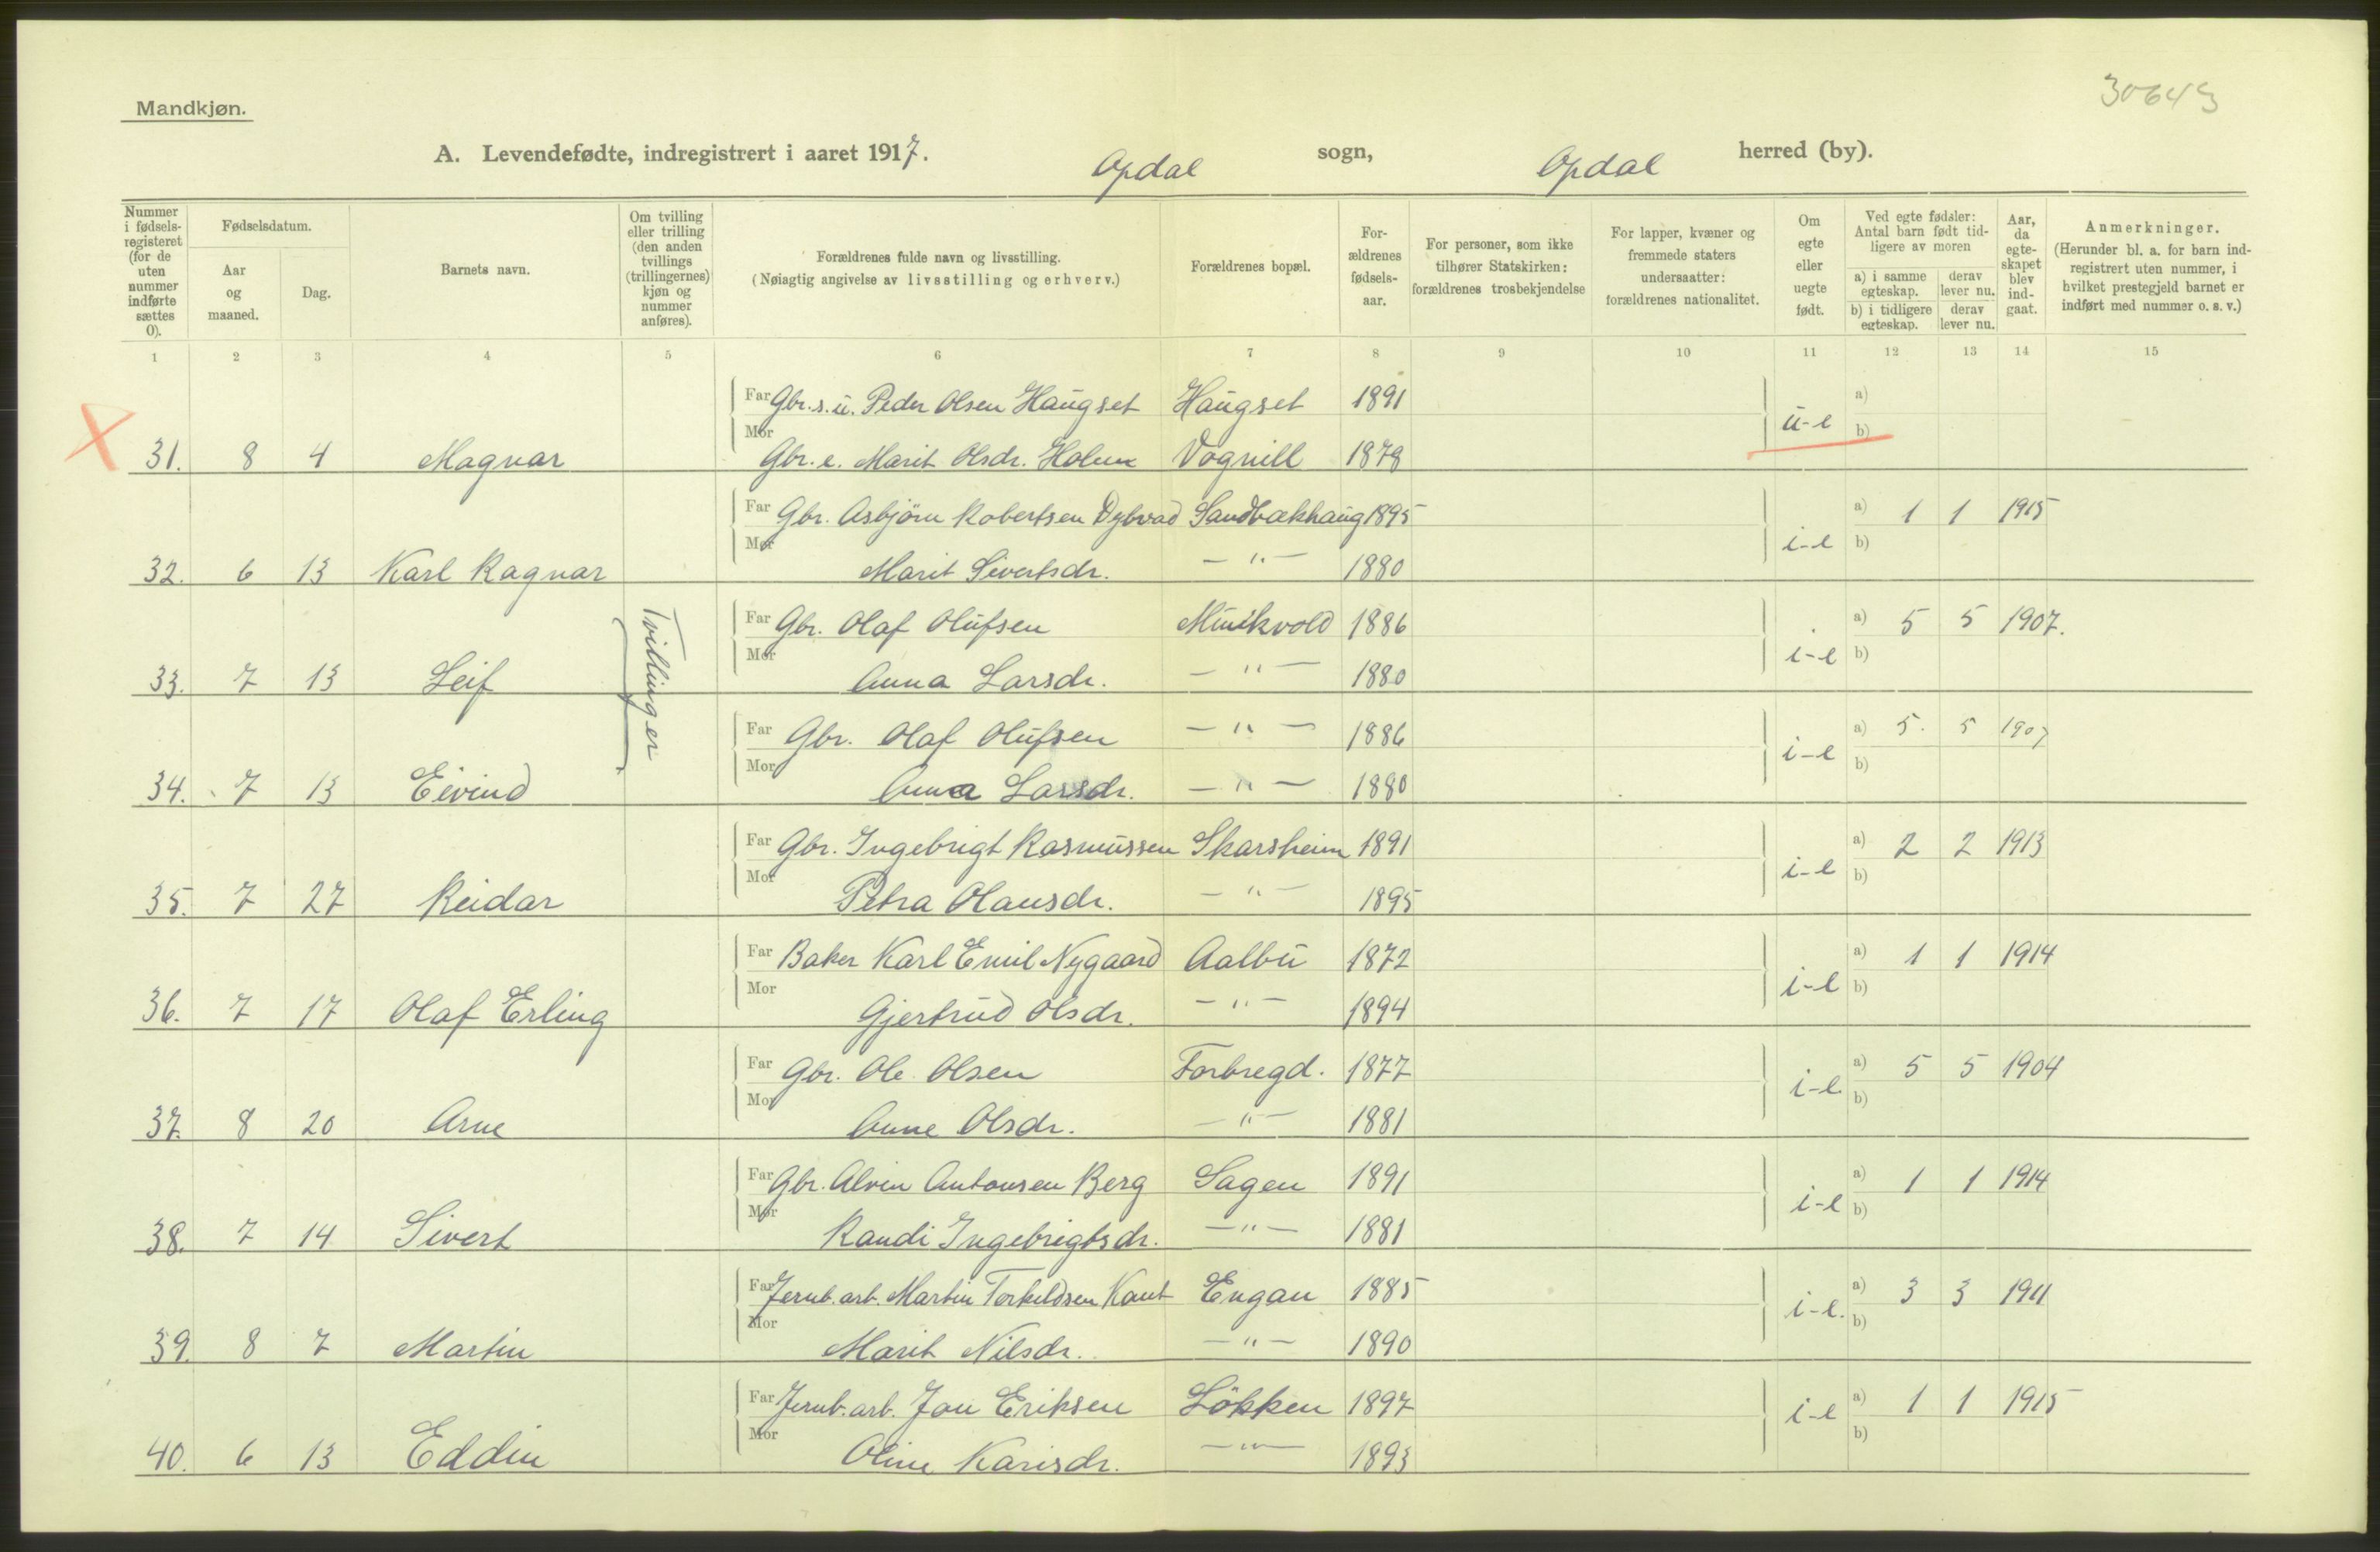 30643
Mandkjøn.
A. Levendefødte, indregistrert i aaret 1917. Opdal sogn, Opdal herred (by).
Nummer i fødselsregisteret (for de uten nummer indførte sættes 0).
Fødselsdatum.
Aar og maaned.
Dag.
Barnets navn.
Om tvilling eller trilling (den anden tvillings (trillingernes) kjøn og nummer anføres).
Forældrenes fulde navn og livsstilling.
(Nøiagtig angivelse av livsstilling og erhverv.)
Forældrenes bopæl.
Forældrenes fødselsaar.
For personer, som ikke tilhører Statskirken: forældrenes trosbekjendelse
For lapper, kvæner og fremmede staters undersaatter: forældrenes nationalitet.
Om egte eller uegte født.
Ved egte fødsler: Antal barn født tidligere av moren
a) i samme egteskap.
derav lever nu.
b) i tidligere egteskap.
derav lever nu.
Aar, da egteskapet blev indgaat.
Anmerkninger.
(Herunder bl. a. for barn indregistrert uten nummer, i hvilket prestegjeld barnet er indført med nummer o. s. v.)
1 2 3 4 5 6 7 8 9 10 11 12 13 14 15
Far Gbr. s. u. Peder Olsen Haugset Haugset 1891 a)
31. 8 4 Magnar Mor Gbr. e. Marit Olsdr. Holum Vognill 1878 u-e b)
Far Gbr. Asbjörn Robertsen Dybvad Sandbækhaug 1895 a) 1 1 1915
32. 6 13 Karl Ragnar Mor Marit Sivertsdr. — " — 1880 i-e b)
Tvillinger
Far Gbr. Olaf Olufsen Munkvold 1886 a) 5 5 1907.
33. 7 13 Leif Mor Anna Larsdr. — " — 1880 i-e b)
Far Gbr. Olaf Olufsen — " — 1886 a) 5. 5 1907
34. 7 13 Eivind Mor Anna Larsdr. — " — 1880 i-e b)
Far Gbr. Ingebrigt Rasmussen Skarsheim 1891 a) 2 2 1913
35. 7 27 Reidar Mor Petra Olausdr. — " — 1895 i-e b)
Far Baker Karl Emil Nygaard Aalbu 1872 a) 1 1 1914
36. 7 17 Olaf Erling Mor Gjertrud Olsdr. — " — 1894 i-e b)
Far Gbr. Ole Olsen Forbregd. 1877 a) 5 5 1904
37. 8 20 Arne Mor Anne Olsdr. — " — 1881 i-e. b)
Far Gbr. Alvin Antonsen Berg Sagen 1891 a) 1 1 1914
38. 7 14 Sivert Mor Randi Ingebrigtsdr. — " — 1881 i-e b)
Far Jernb. arb. Martin Torkildsen Kant Engan 1885 a) 3 3 1911
39. 8 7 Martin Mor Marit Nilsdr. — " — 1890 i-e. b)
Far Jernb. arb. Jon Eriksen Lökken 1897 a) 1 1 1915
40. 6 13 Eddin Mor Oline Karisdr. — " — 1893 i-e b)